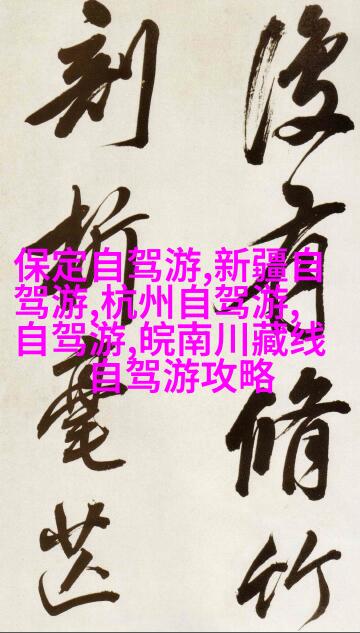 保定自驾游,新疆自
驾游,杭州自驾游,
自驾游,皖南川藏线
自驾游攻略
有脩竹
折毫